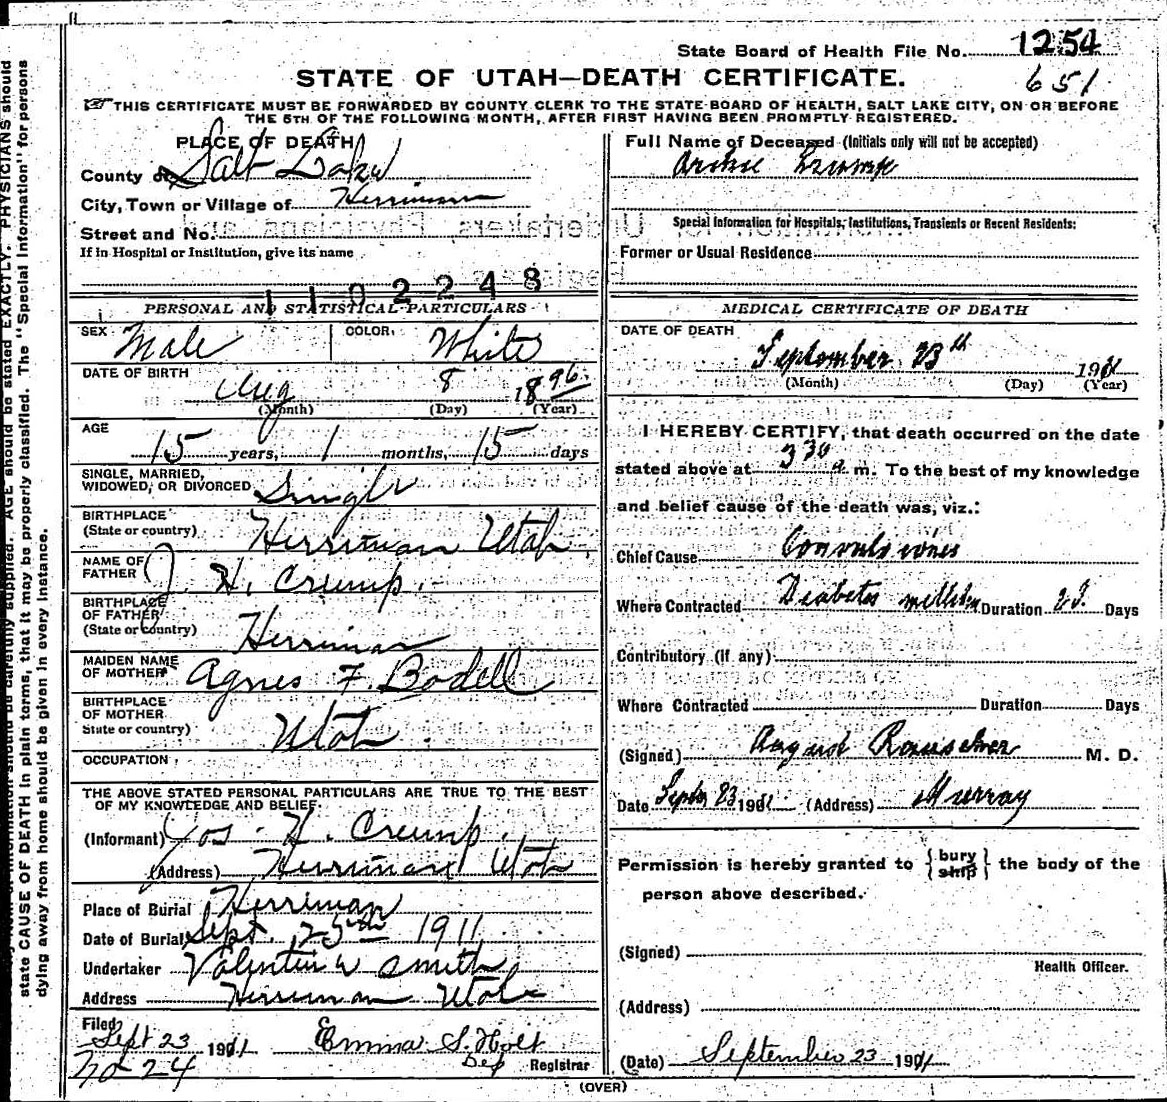 State Board of Health File No. 1254
STATE OF UTAH—DEATH CERTIFICATE.
651
THIS CERTIFICATE MUST BE FORWARDED BY COUNTY CLERK TO THE STATE BOARD OF HEALTH, SALT LAKE CITY, ON OR BEFORE
THE 5TH OF THE FOLLOWING MONTH, AFTER FIRST HAVING BEEN PROMPTLY REGISTERED.
PLACE OF DEATH
County of Salt Lake
City, Town or Village of Herriman
Street and No.
If in Hospital or Institution, give its name
1102248
PERSONAL AND STATISTICAL PARTICULARS
SEX Male COLOR White
DATE OF BIRTH
Aug 8 1896
(Month) (Day) (Year)
AGE
15 years, 1 months, 15 days
SINGLE, MARRIED,
WIDOWED, OR DIVORCED Single
BIRTHPLACE
(State or country) Herriman Utah.
NAME OF
FATHER J. H. Crump.
BIRTHPLACE
OF FATHER
(State or country) Herriman
MAIDEN NAME
OF MOTHER Agnes F. Bodell
BIRTHPLACE
OF MOTHER
State or country) Utah.
OCCUPATION
THE ABOVE STATED PERSONAL PARTICULARS ARE TRUE TO THE BEST
OF MY KNOWLEDGE AND BELIEF.
(Informant) Jos. H. Crump.
(Address) Herriman Utah
Place of Burial Herriman
Date of Burial Sept. 25th 1911
Undertaker Valentin W Smith
Address Herriman Utah
Filed
Sept 23 1911 Emma S. Holt
No 24 Dep Registrar
(OVER)
Full Name of Deceased (Initials only will not be accepted)
Archie Crump
Special Information for Hospitals, Institutions, Transients or Recent Residents:
Former or Usual Residence
MEDICAL CERTIFICATE OF DEATH
DATE OF DEATH
September 23th 1911
(Month) (Day) (Year)
I HEREBY CERTIFY, that death occurred on the date
stated above at 330 a. m. To the best of my knowledge
and belief cause of the death was, viz.:
Chief Cause Convulsions
Where Contracted Diabetes Duration Days
Contributory (if any)
Where Contracted Duration Days
(Signed) August M. D.
Date Sept 23 1911 (Address) Murray
Permission is hereby granted to { bury ship } the body of the
person above described.
(Signed)
Health Officer.
(Address)
(Date) September 23 1911
state CAUSE OF DEATH in plain terms, that it may be properly classified. The "Special Information" for persons
dying away from home should be given in every instance.